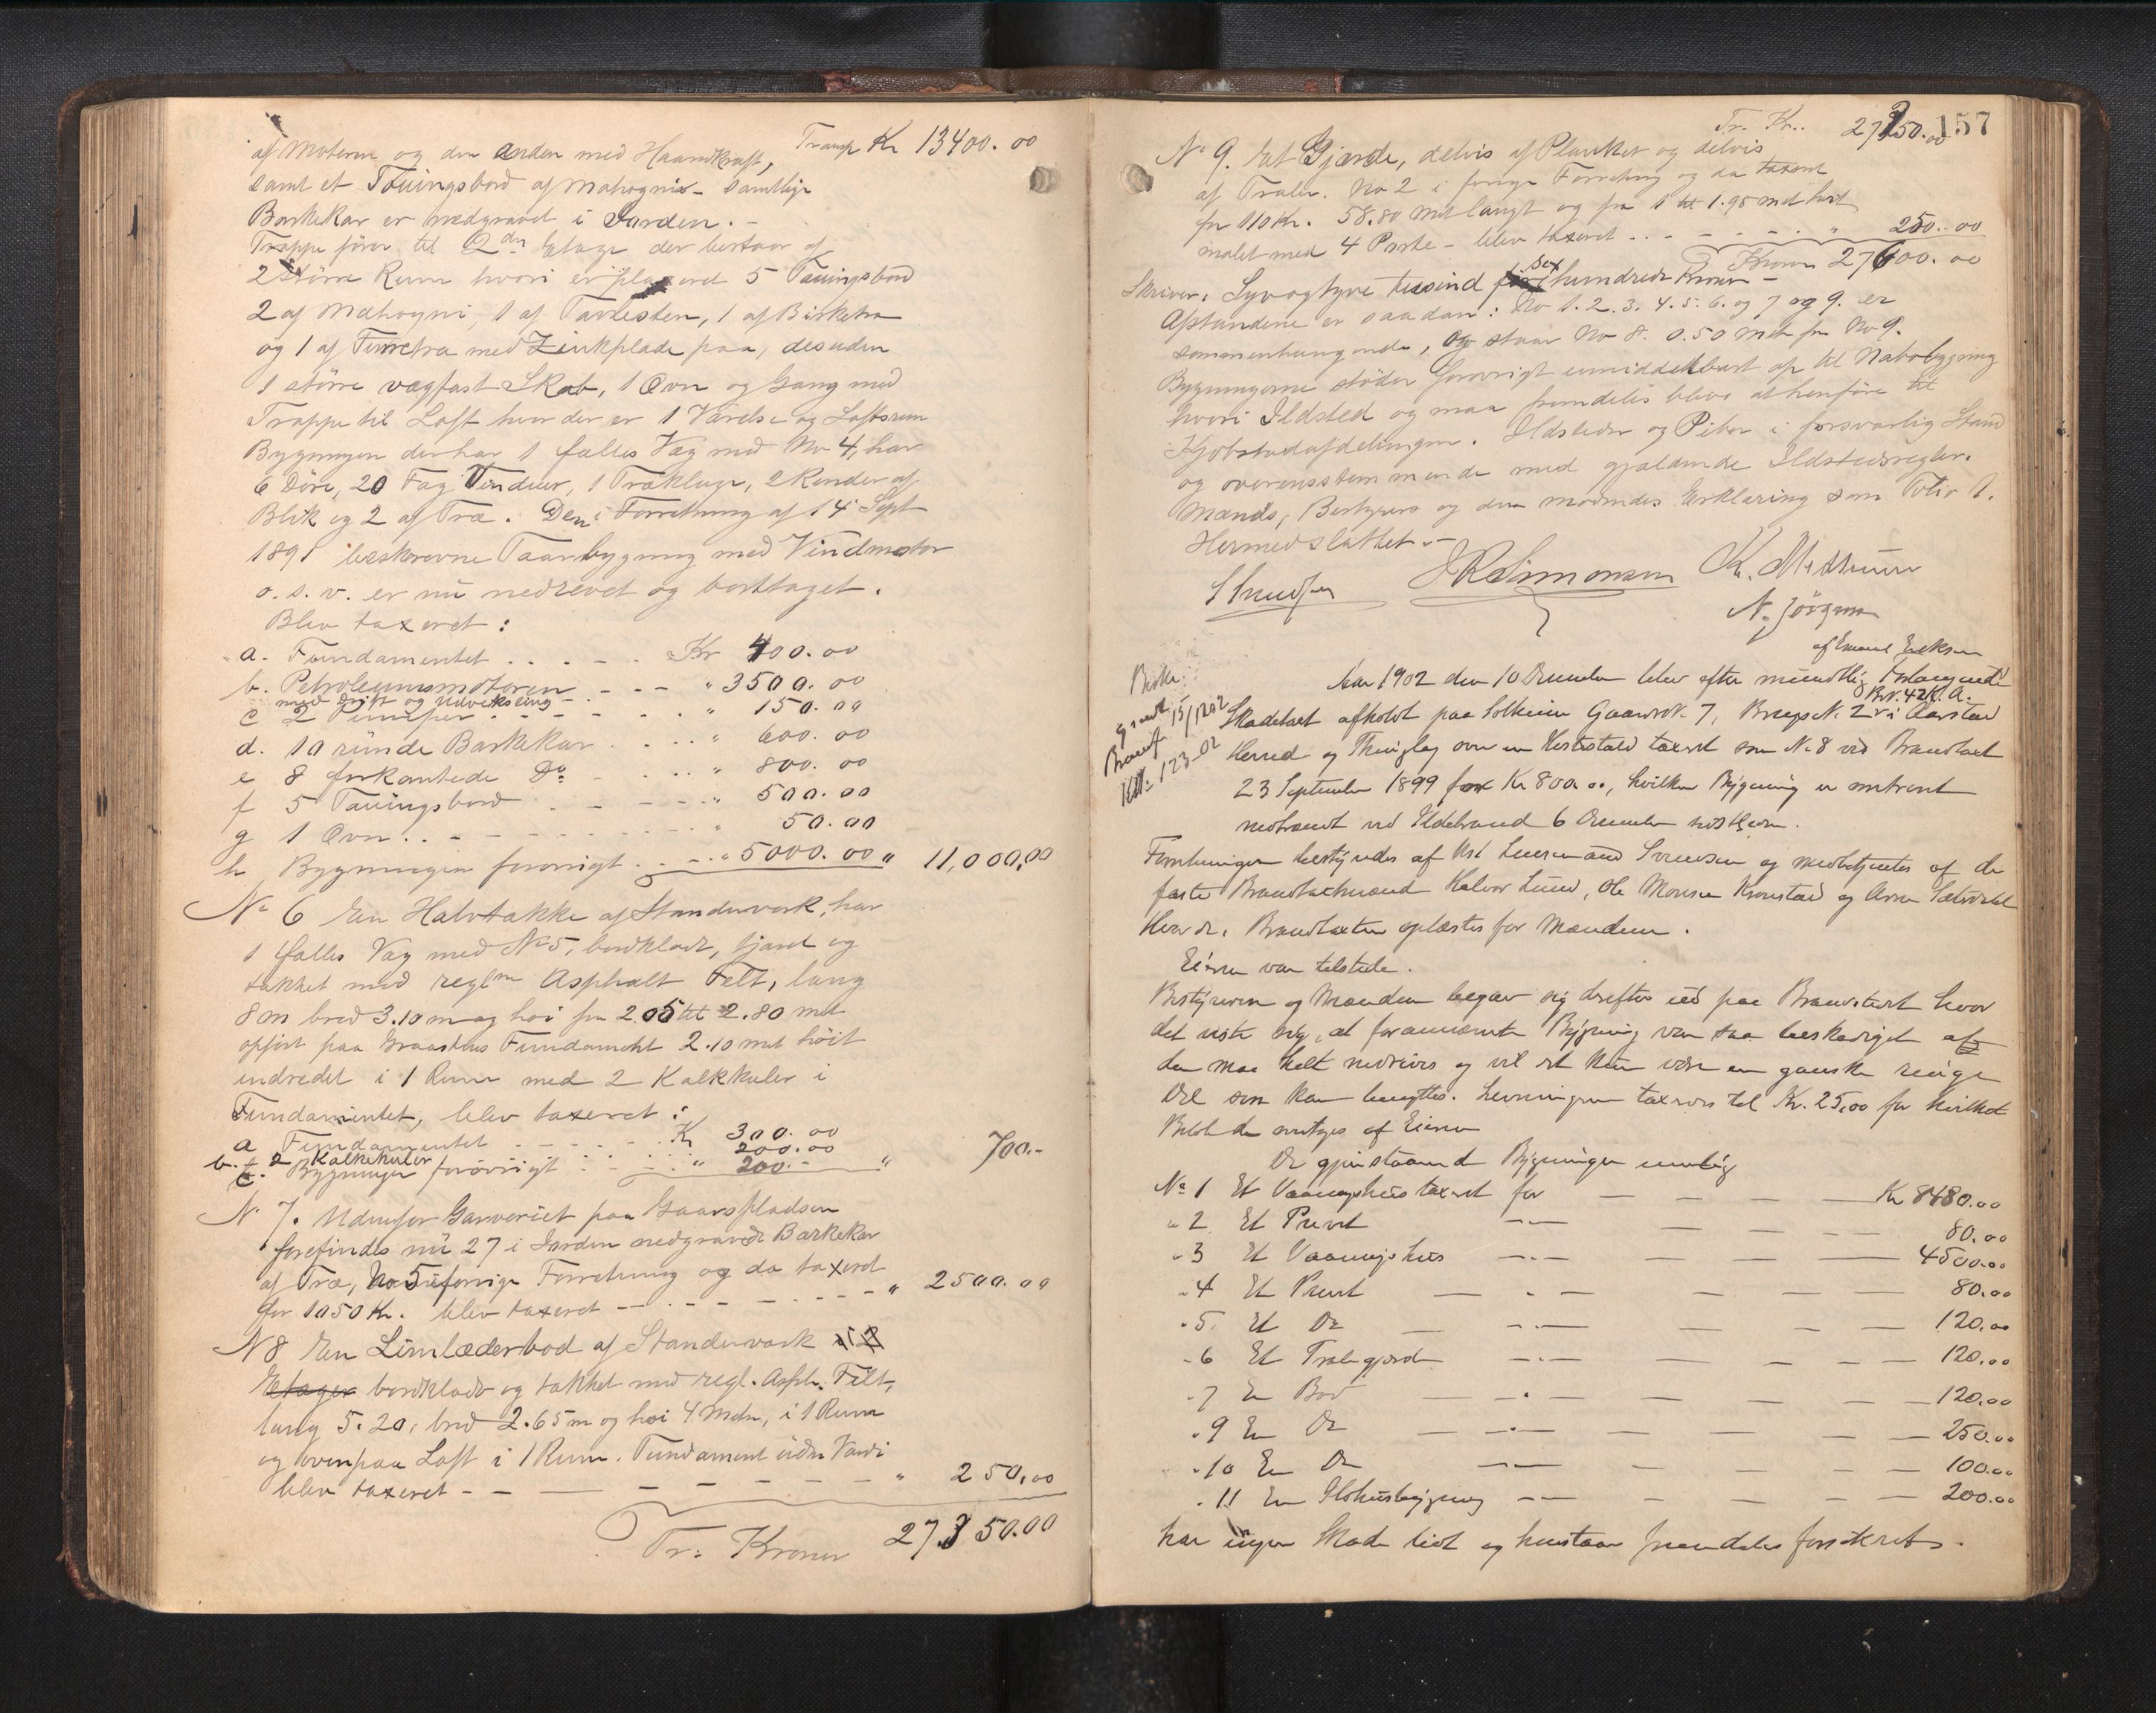 Transp Kr 13400.00
af Motoren og den anden med Haandkraft,
samt et Touingsbord af Mahogni - samtlige
Barkekar er nedgravet i Jorden. -
Trappe fører til 2den Etage der bestaar af
2 større Rum hvori er placeret 5 Touingsbord
2 af Mahogni, 1 af Tavlesten, 1 af Birketræ
og 1 af Furretræ med Zinkplade paa, desuden
1 større vægfast Skab, 1 Ovn og Gang med
Trappe til Loft hvor der er 1 Værelse og Loftsrum
Bygningen der har 1 fælles Væg med No 4, har
6 Döre, 20 Fag Vinduer, 1 Træluge, 2 Render af
Blik og 2 af Træ. Den i Forretning af 14 Sept
1891 beskrevne Taarnbygning med Vindmotor
o. s. v. er nu nedrevet og borttaget.
Blev taxeret:
a. Fundamentet . . . . Kr 400.00
b. Petroleumsmotoren - - - " 3500.00
med Drift og Udveksling -
c 2 Pumper - - - - " 150.00
d. 10 runde Barkekar . . . . " 600.00
e 8 firkantede Do - . . . " 800.00
f 5 Touingsbord . - - - - " 500.00
g 1 Ovn . . - - - - - " 50.00
h Bygningen forøvrigt . . - . " 5000.00 " 11,000,00
No 6 En Halvtække af Standerverk, har
1 fælles Væg med No 5, bordklædt, tjæret og
tækket med reglm Asphalt Felt, lang
8 m bred 3.10 m og høi fra 2.05 til 2.80 met
opført paa Graastens Fundament 2.10 met höit
indredet i 1 Rum med 2 Kalkkuler i
Fundamentet, blev taxeret:
a Fundamentet - - - - . . Kr 300.00
b. 2 Kalkekuler 200.00
c. Bygningen forøvrigt . - . - : " 200.- " 700.-
No 7. Udenfor Garveriet paa Gaarspladsen
forefindes nu 27 i Jorden nedgravede Barkekar
af Træ, No 5 i forrige Forretning og da taxeret
for 1050 Kr. blev taxeret - - . - - - - - " 2500.00
No 8 En Limlæderbod af Standerverk i 2
Etager bordklædt og tækket med regl. Asph. Felt,
lang 5.20, bred 2.65 m og høi 4 Meter, i 1 Rum
og ovenpaa Loft i 1 Rum. Fundament uden Værdi
blev taxeret - - - - - - - " 250,00
Tr: Kroner 27350.00
157
Tr. Kr.. 27350.00
No 9. Et Gjærde, delvis af Planker og delvis
af Traler. No 2 i forrige Forretning og da taxeret
for 110 Kr. 58.80 met langt og fra 1 til 1.95 met høit
malet med 4 Porte - blev taxeret . . - - - . " 250.00
Kroner 27600.00
Skriver: Syvogtyve tusind sex hundrede Kroner -
Afstandene er saadan: No 1. 2. 3. 4. 5. 6. og 7 og 9. er
sammenhængende, og staar No 8. 0.50 met fra No 9.
Bygningerne støder forøvrigt umiddelbart op til Nabobygning
hvori Ildsted og maa fremdeles blive at henføre til
Kjøbstadafdelingen. Ildsteder og Piber i forsvarlig Stand
og overensstemmende med gjældende Ildstedsregler.
Mænds, Bestyrers og den mødendes Erklæring som Folio 1.
Hermed sluttet. -
S Knudsen J R Simonsen K. Mathiesen
N. Jörgensen
af Emanuel Eriksen
Aar 1902 den 10 December blev efter mundtlig Forlangende
Bev. 42 R. A.
Skadetaxt afholdt paa Solheim Gaards N. 7, Brugs N. 2 i Aarstad
Herred og Thinglag over en Hestestald taxeret som No 8 ved Brandtaxt
23 September 1899 for Kr 800.00, hvilken Bygning er omtrent
nedbrændt ved Ildebrand 6 December sidstleden.
15/12 02
123-02
Forretningen bestyredes af Kst Lensmand Svendsen og medbetjentes af de
faste Brandtaxtmænd Halvor Lund, Ole Monsen Kronstad og Arne Sætredal
Brandtaxten oplæstes for Mændene.
Eieren var tilstede.
Bestyreren og Mændene begav sig derefter ud paa Brandstedet hvor
det viste sig, at forannævnte Bygning var saa beskadiget at
den maa helt nedrives og vil det kun være en ganske ringe
Del som kan benyttes. Levningerne taxeres til Kr. 25,00 for hvilket
Beløb de modtages af Eieren
De gjenstaaende Bygninger nemlig
No 1 Et Vaaningshus taxeret for — — — — Kr 8480.00
" 2 Et Privet —"— — — — 80.00
" 3 Et Vaaningshus —"— — — — 4500.00
" 4 Et Privet — " — — — — 80.00
" 5. Et Do — —"— — — — 120.00
" 6 Et Tralegjerde —"— — — — 120.00
" 7 En Bod — " — — — — 120.00
" 9 En Do — —"— — — — 250.00
" 10 En Do —"— — — — 100.00
" 11 En Ildhusbygning —"— — — — 200.00
har ingen Skade lidt og henstaar fremdeles forsikret.